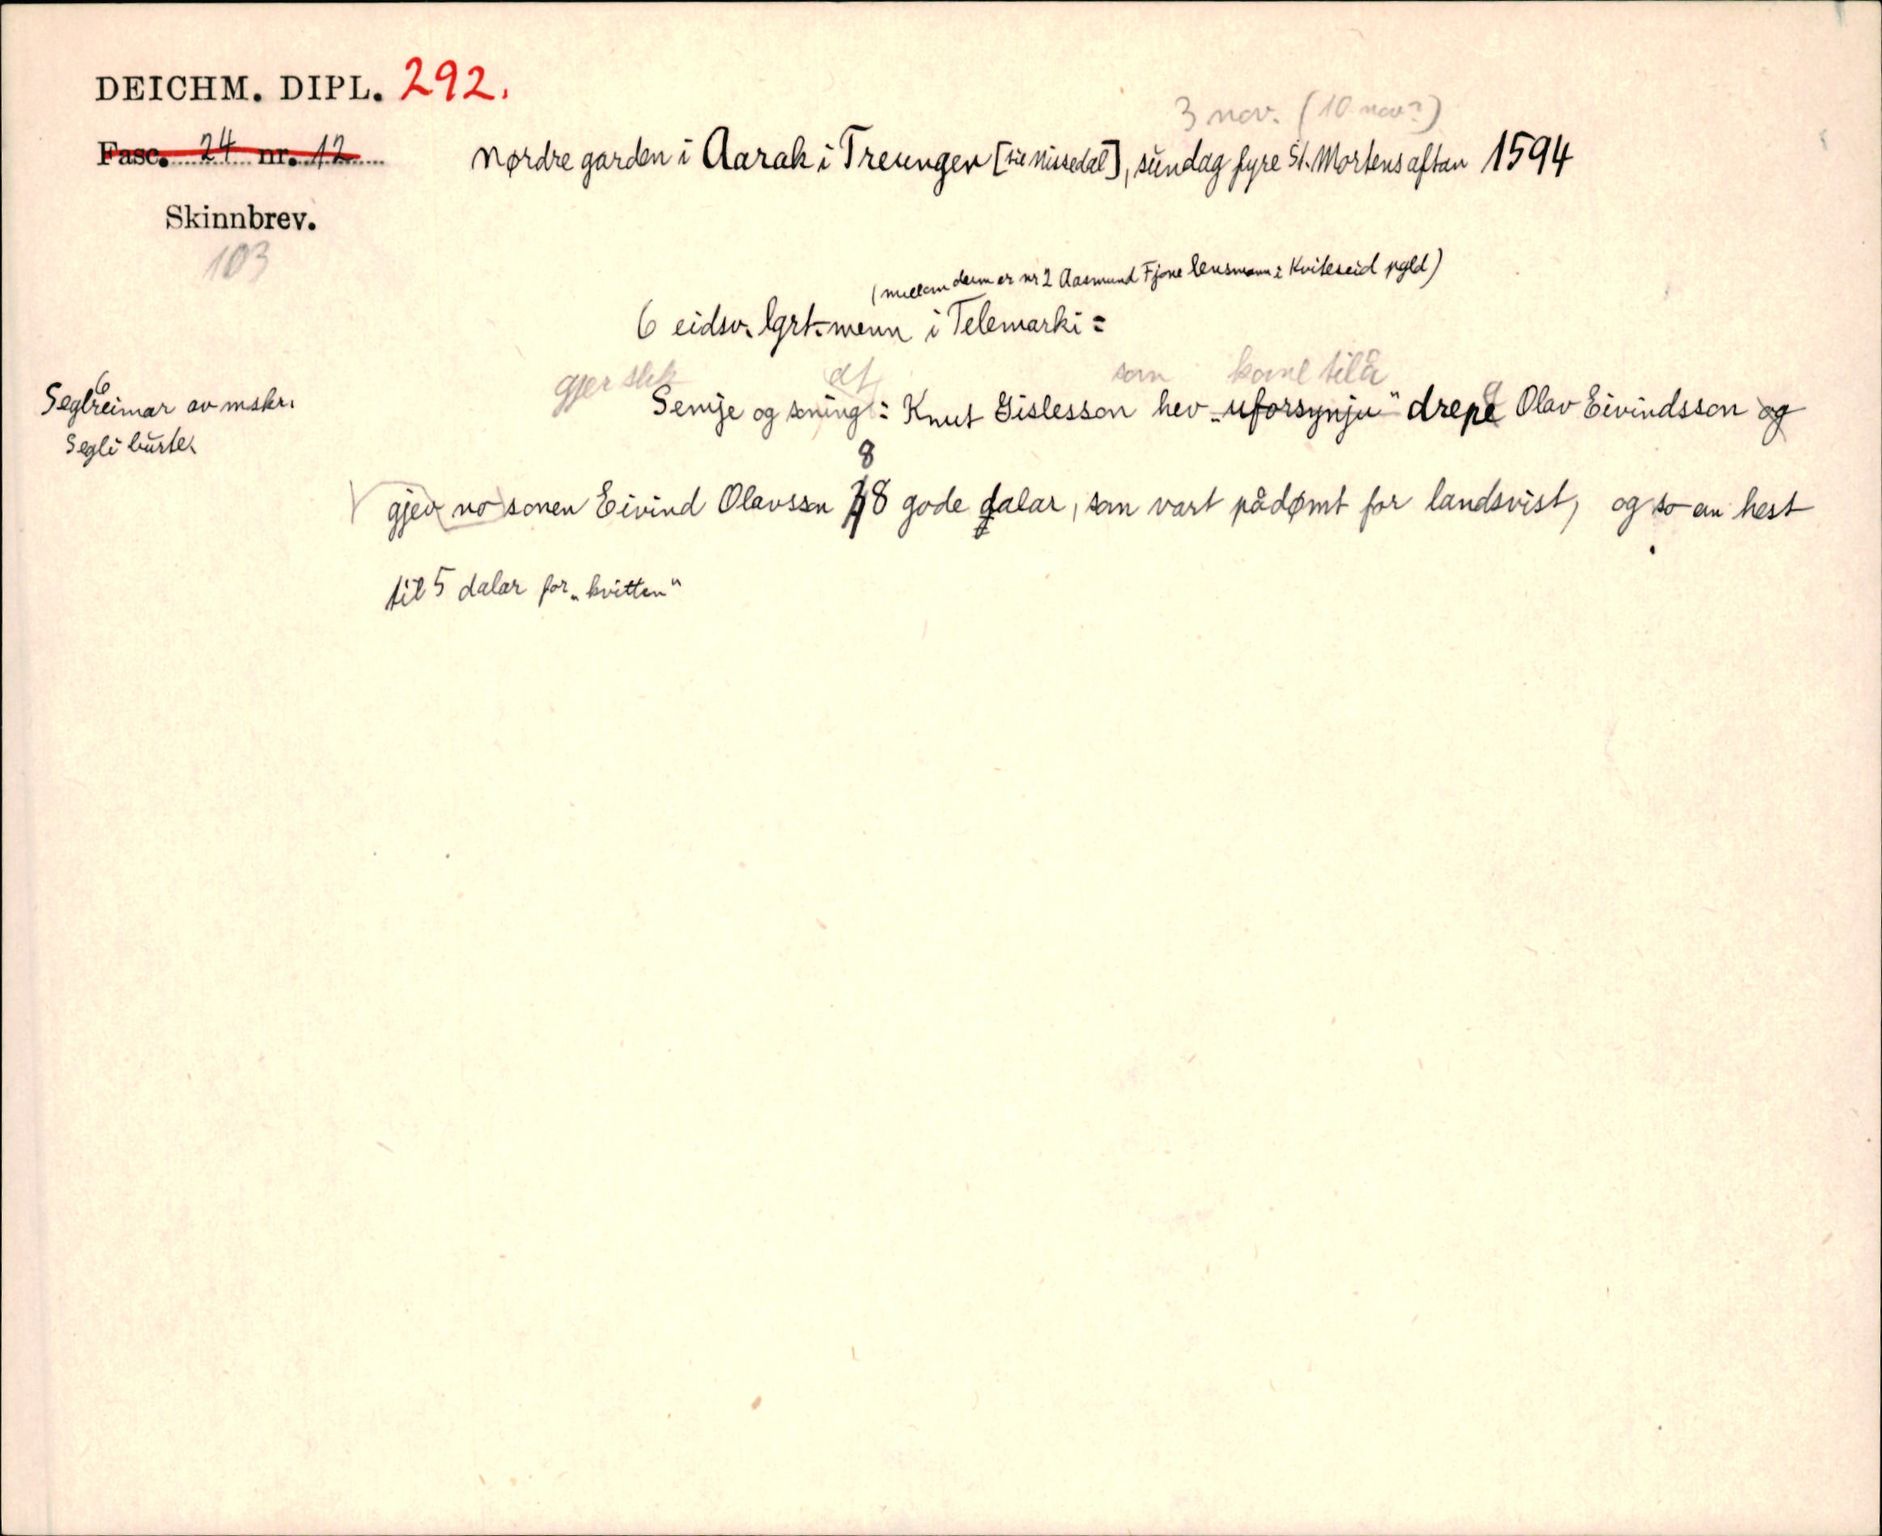 DEICHM. DIPL. 292.
3 nov. (10 nov?)
Fasc. 24 nr. 12
Nordre garden i Aarak i Treungen [i Nissedal], sundag fyre St. Mortensaftan 1594
Skinnbrev.
103
(millom deim er nr 2 Aasmund Fjone lensmann i Kviteseid pgld)
6 eidsv. lgrt.menn i Telemarki:
gjer slik at som kom til å
6
Seglreimar av mskr.
Semje og soning: Knut Gislesson hev „uforsynju" drepe Olav Eivindsson og
Segli burte.
8
gjev no sonen Eivind Olavsson 48 gode dalar, som vart pådømt for landsvist, og so ein hest
til 5 dalar for „kvitten"